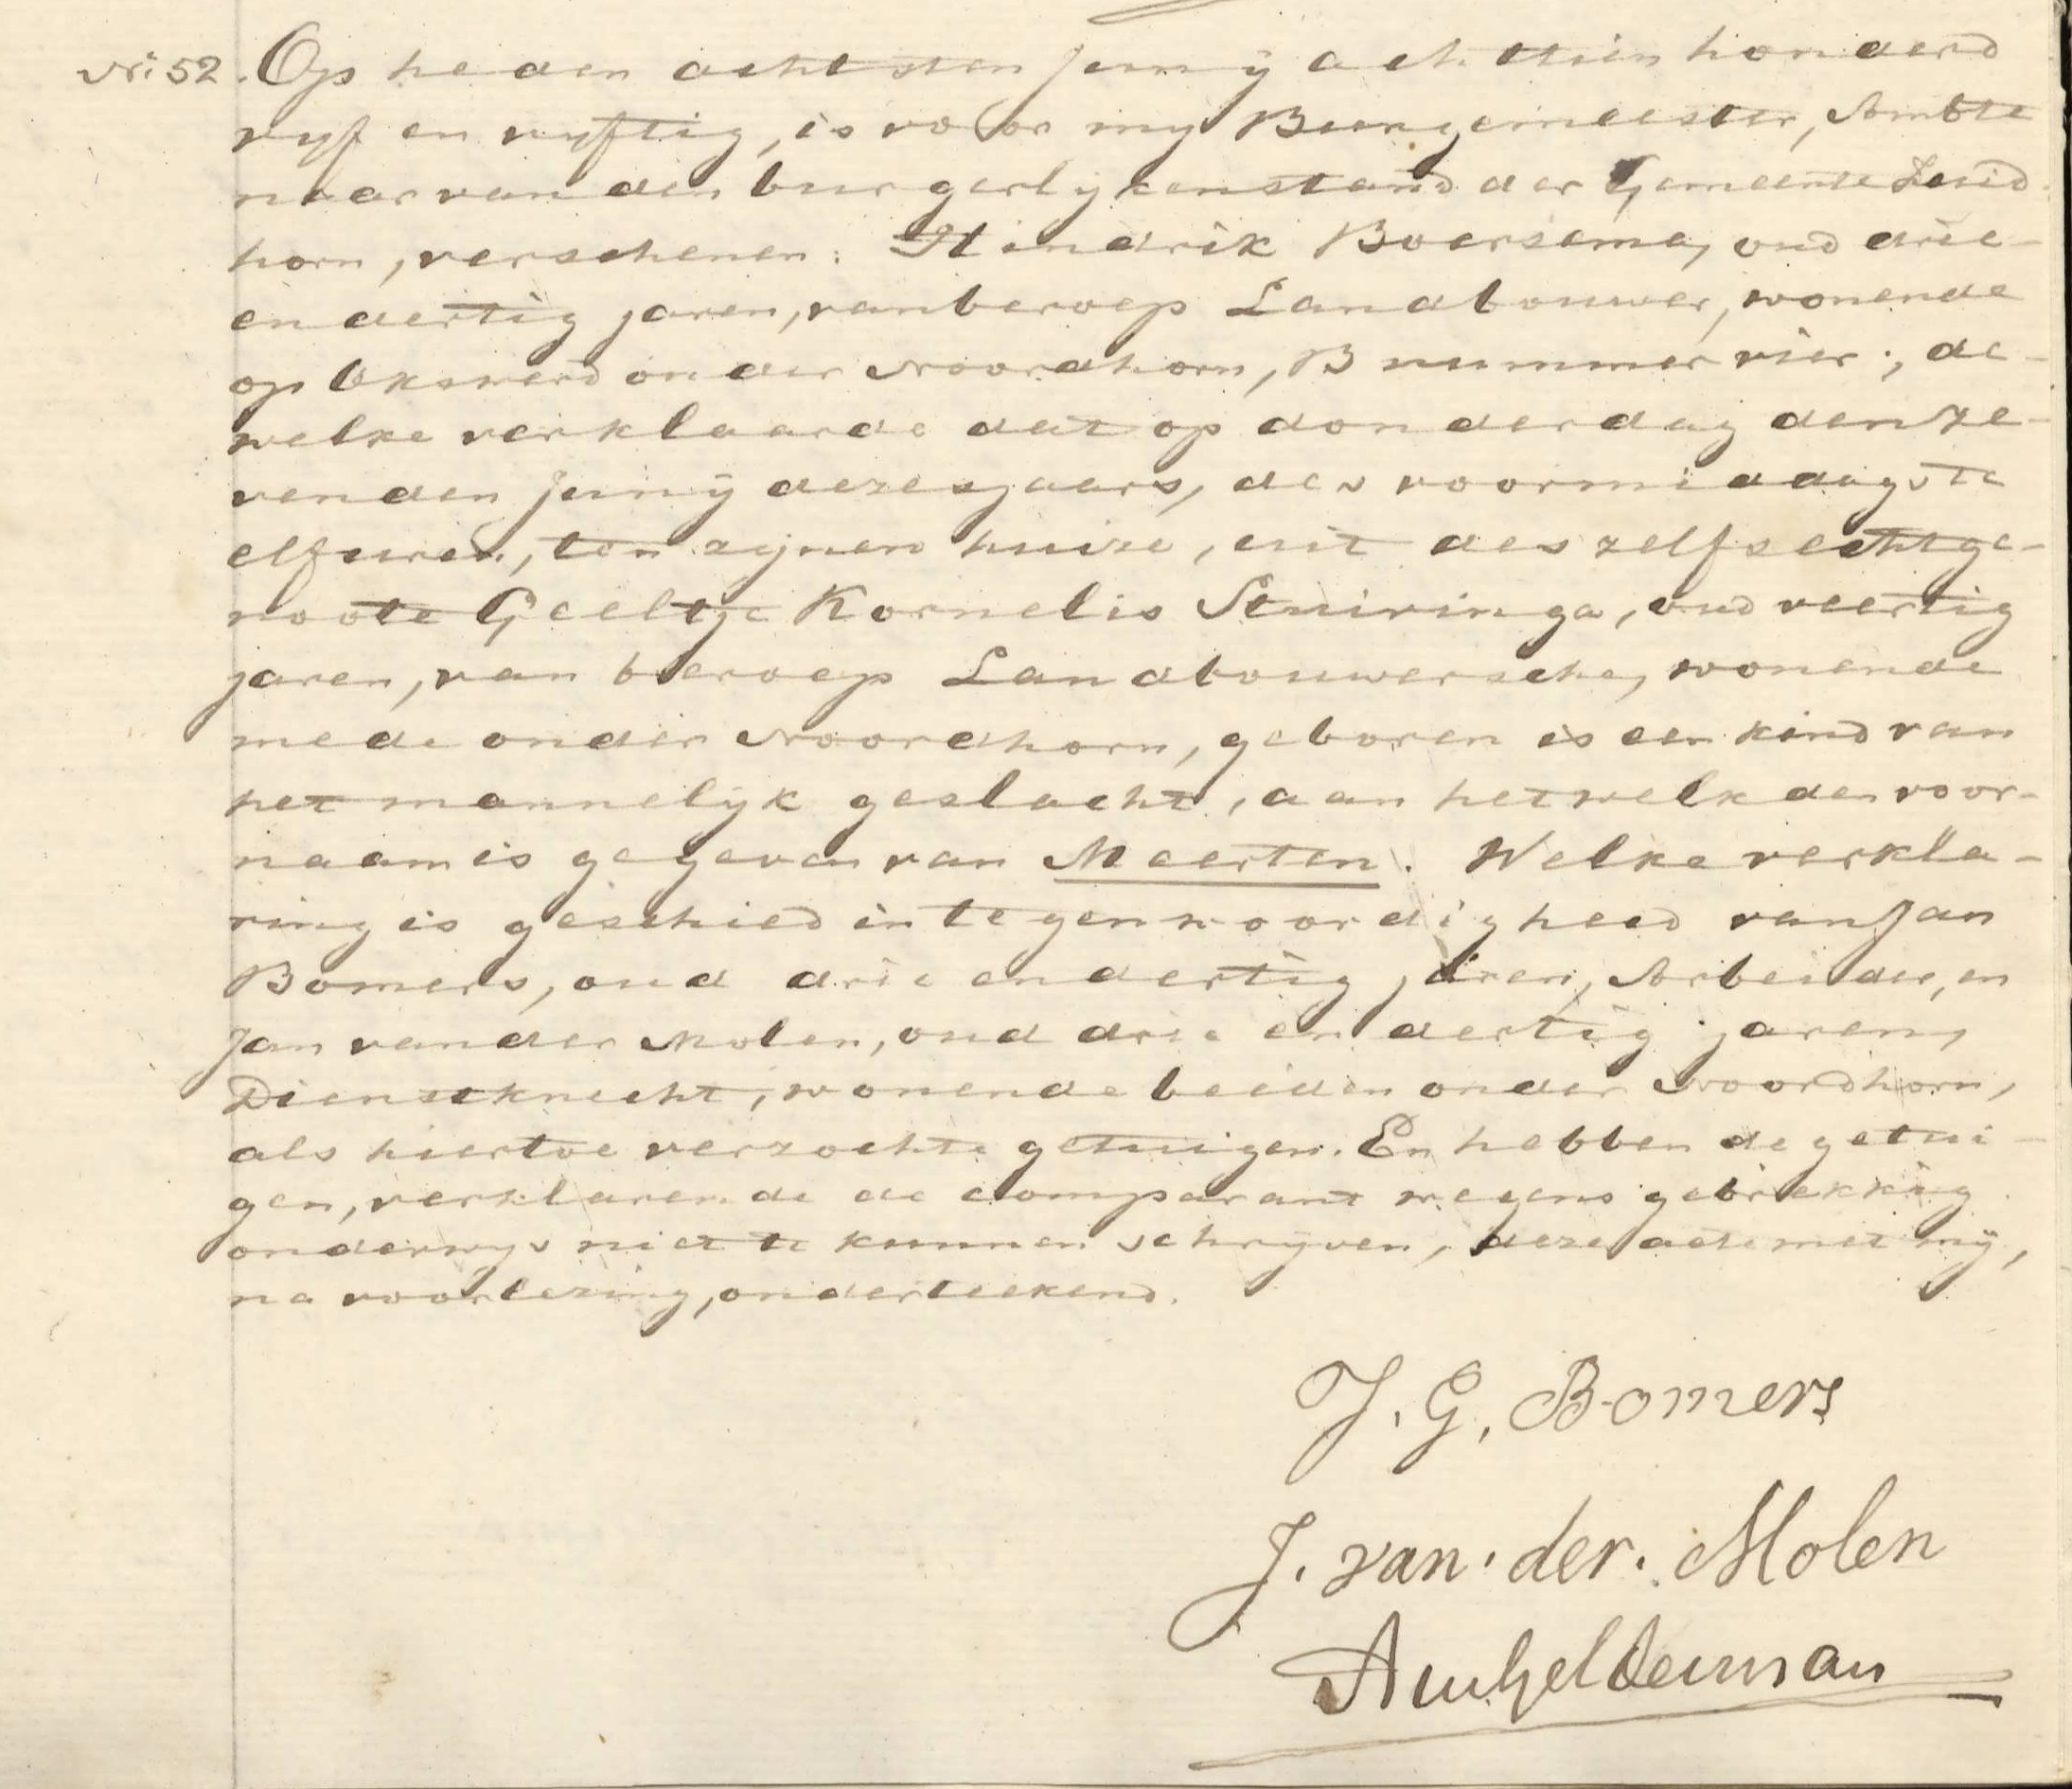 No. 52. Op heden achtsten Juny achttien honderd
vyf en vyftig, is voor my Burgemeester, Ambte
naar van den burgerlyken stand der Gemeente Zuid
horn, verschenen: Hindrik Boersema, oud drie-
en dertig jaren, van beroep Landbouwer, wonende
op Okswerd onder Noordhorn, B nummer vier; de-
welke verklaarde dat op donderdag den ze-
venden Juny dezes jaars, des voormiddags te
elf uren, ten zynen huize, uit deszelfs echtge-
noote Geeltje Kornelis Stuivinga, oud veertig
jaren, van beroep Landbouwersche, wonende
mede onder Noordhorn, geboren is een kind van
het mannelyk geslacht, aan hetwelk de voor-
naam is gegeven van Meerten. Welke verkla-
ring is geschied in tegenwoordigheid van Jan
Bomers, oud drie en dertig jaren, Arbeider, en
Jan van der Molen, oud drie en dertig jaren,
Dienstknecht, wonende beiden onder Noordhorn,
als hiertoe verzochte getuigen. En hebben de getui-
gen, verklarende de comparant wegens gebrekkig
onderwys niet te kunnen schryven, deze acte met my,
na voorlezing, onderteekend.
J. G. Bomers
J. van der Molen